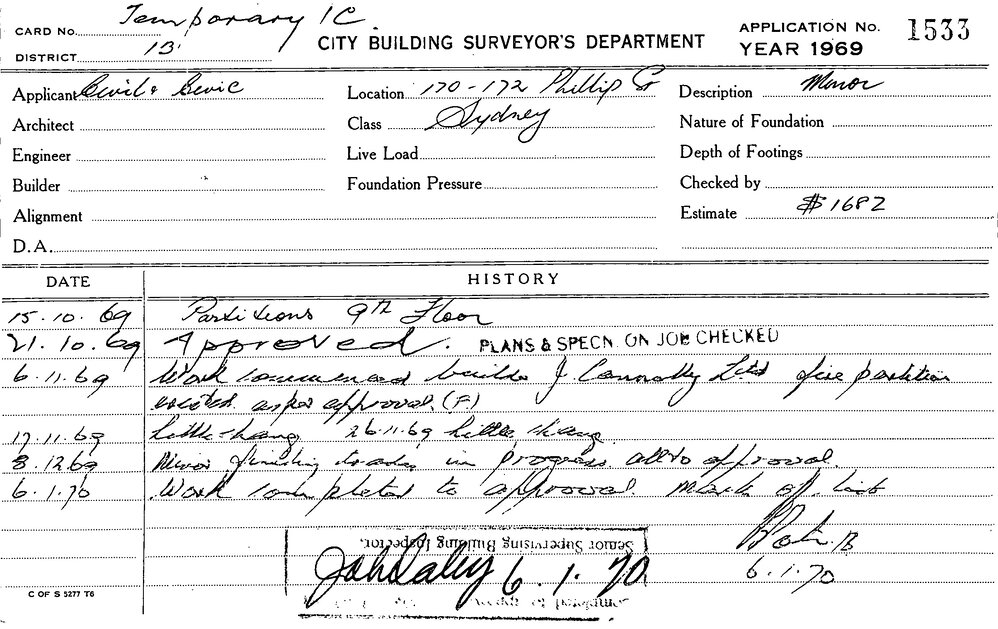 Temporary IC
CARD No.
DISTRICT 13
CITY BUILDING SURVEYOR'S DEPARTMENT
APPLICATION No. 1533
YEAR 1969
Applicant Civil & Sevic
Architect
Engineer
Builder
Alignment
D.A.
Location 170-172 Phillip St
Class Sydney
Live Load
Foundation Pressure
Description Minor
Nature of Foundation
Depth of Footings
Checked by
Estimate $1682
DATE HISTORY
15.10.69 Partitions 9th Floor
21.10.69 Approved. PLANS & SPECN. ON JOB CHECKED
6.11.69 Work commenced builder J. Connolly Ltd fire partition
erected as per approval. (F.)
17.11.69 little change 26.11.69 little change
8.12.69 Minor finishing trades in progress all to approval.
6.1.70 Work completed to approval. Mark off list
6.1.70
Senior Supervising Building Inspector.
John Daley 6.1.70
Completed to approval
C OF S 5277 T6